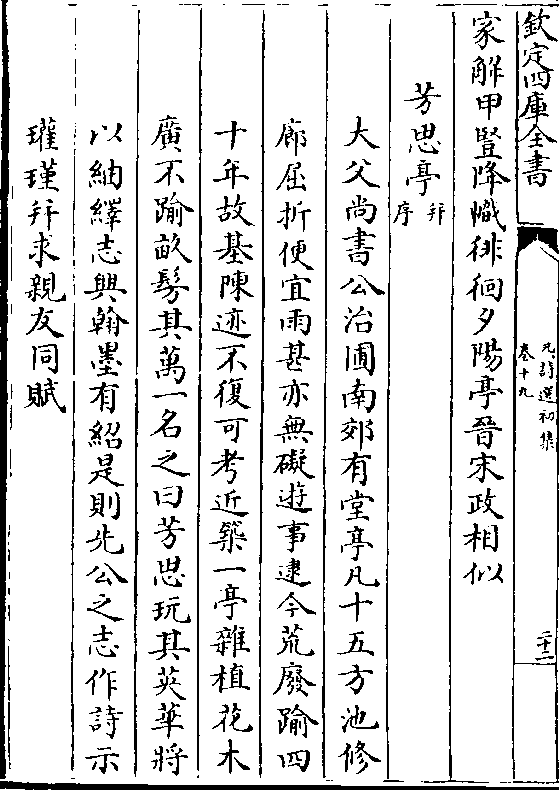 欽定四庫全書
元詩選初集
卷十九
二十二
家解甲豎降幟徘徊夕陽亭晉宋政相似
芳思亭并序
大父尚書公治圃南郊有堂亭凡十五方池修
廊屈折便宜雨甚亦無礙遊事逮今荒廢踰四
十年故基陳迹不復可考近築一亭雜植花木
廣不踰畝髣其萬一名之曰芳思玩其英華將
以紬繹志興翰墨有紹是則先公之志作詩示
瓘瑾并求親友同賦